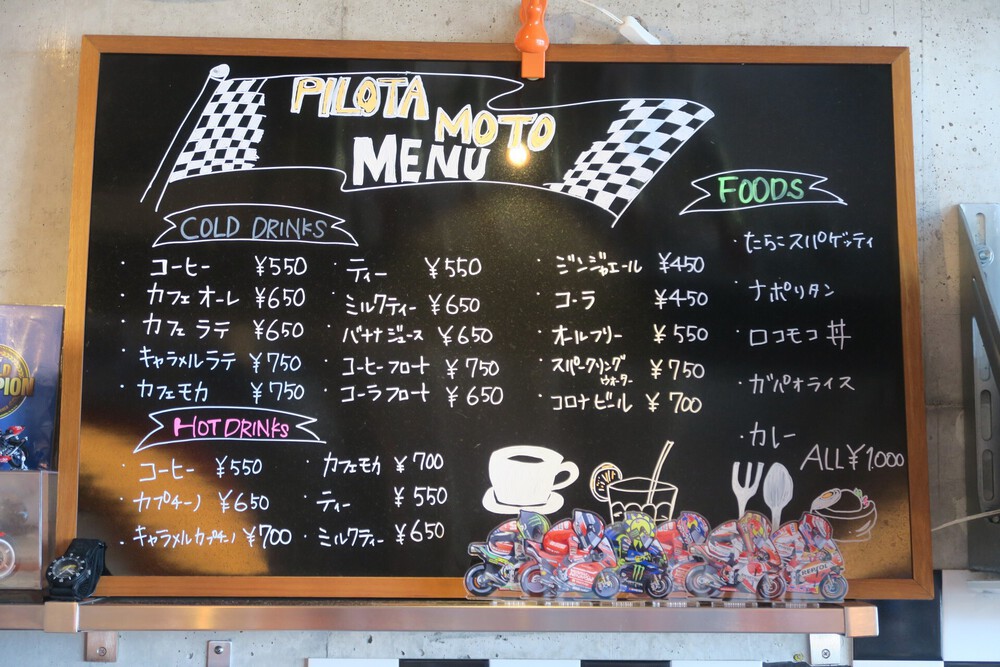 PILOTA MOTO
MENU
COLD DRINKS
・コーヒー ¥550
・カフェオーレ ¥650
・カフェラテ ¥650
・キャラメルラテ ¥750
・カフェモカ ¥750
・ティー ¥550
・ミルクティー ¥650
・バナナジュース ¥650
・コーヒーフロート ¥750
・コーラフロート ¥650
・ジンジャエール ¥450
・コーラ ¥450
・オールフリー ¥550
・スパークリング
ウォーター ¥750
・コロナビール ¥700
HOT DRINKS
・コーヒー ¥550
・カプチーノ ¥650
・キャラメルカプチーノ ¥700
・カフェモカ ¥700
・ティー ¥550
・ミルクティー ¥650
FOODS
・たらこスパゲッティ
・ナポリタン
・ロコモコ丼
・ガパオライス
・カレー
ALL ¥1,000
PION